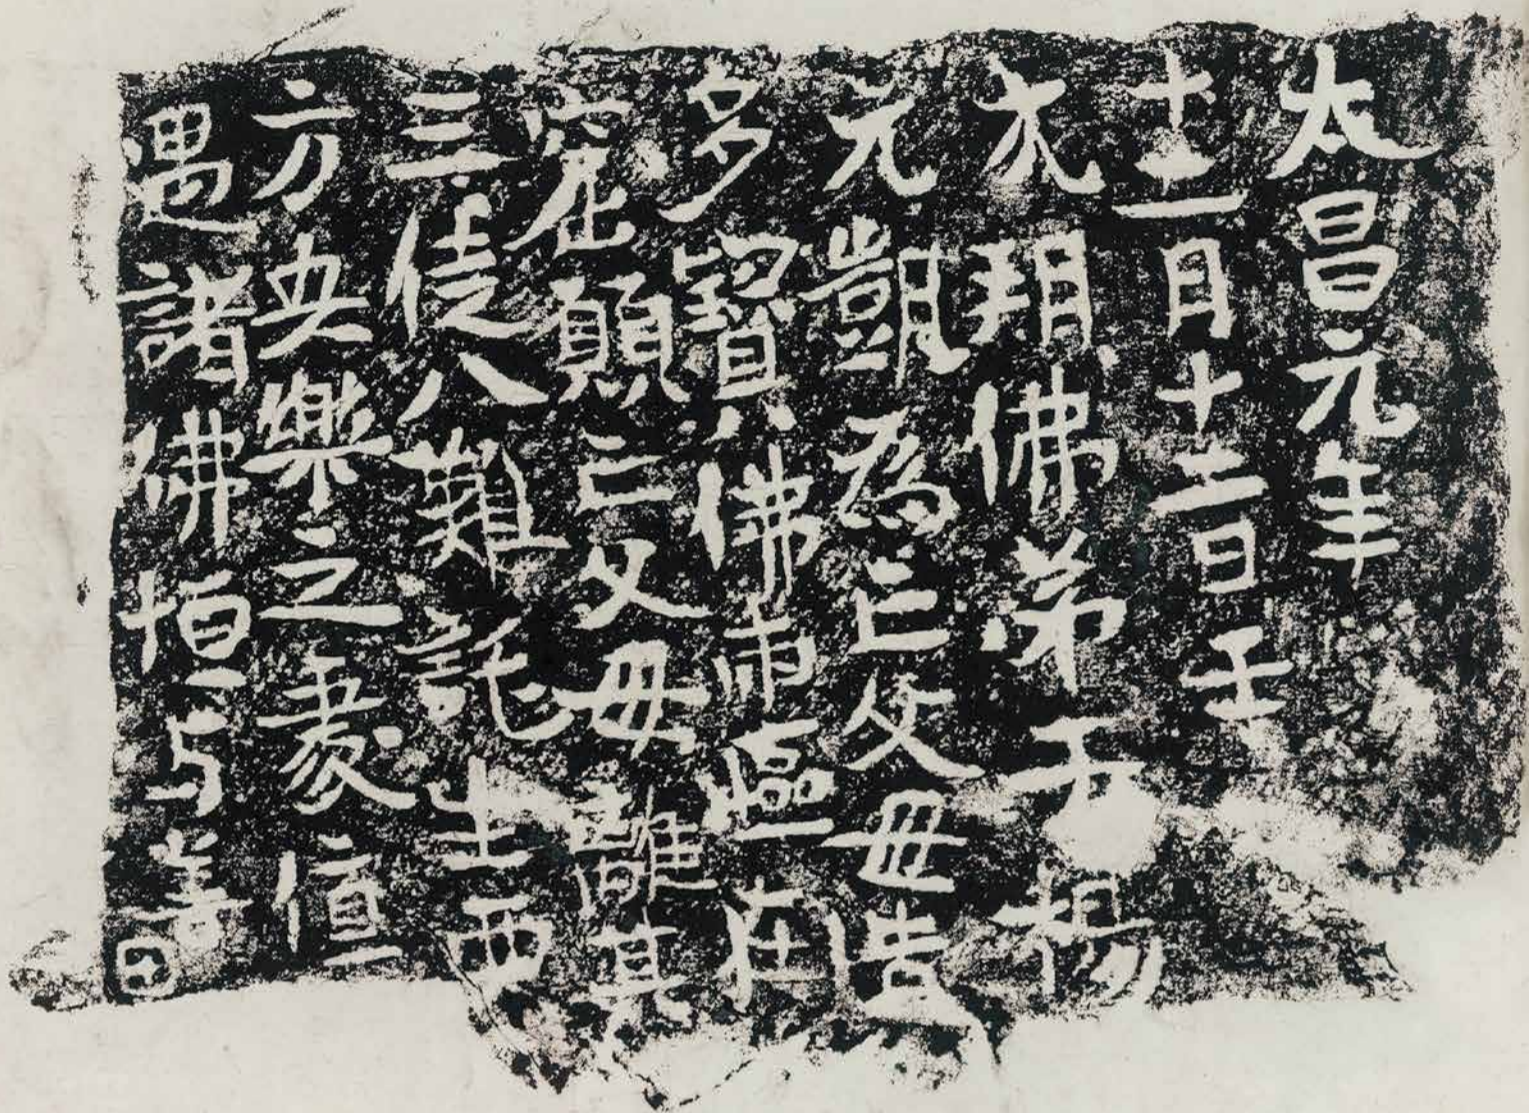 太昌元年
十二月十二日壬
朔佛弟子楊
元凱為亡父母造
多寶佛兩區在
窟願亡父母離其
三徒八難託生西
方安樂之處值
遇諸佛恒与善囙